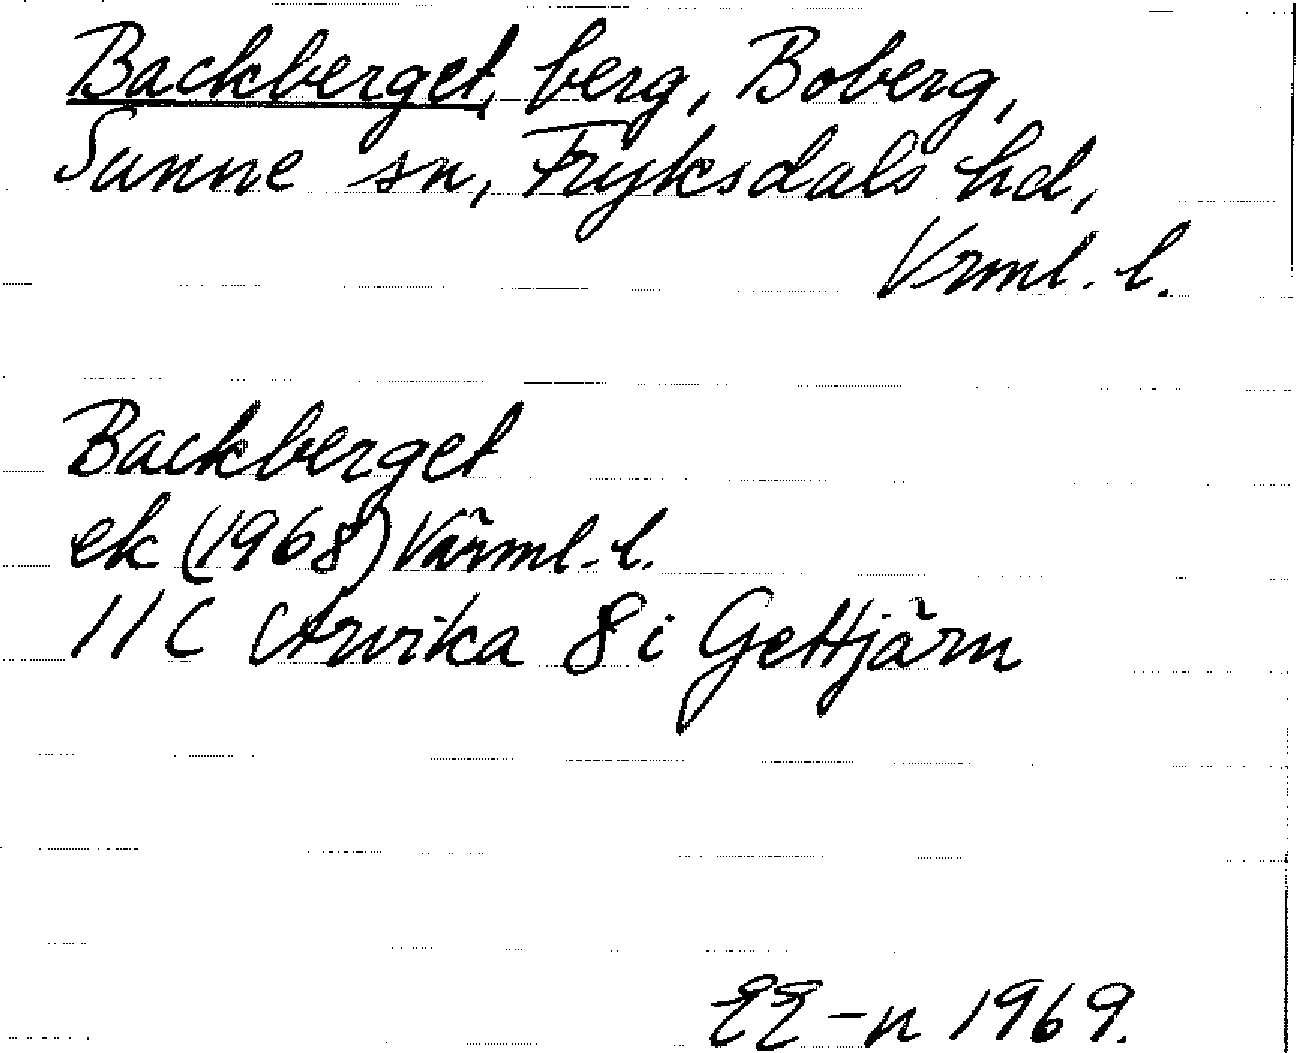 Backberget, berg, Boberg,
Sunne sn, Fryksdals hd,
Vrml. l.
Backberget
ek (1968) Värml. l.
11 C Arvika 8 i Gettjärn
EE-n 1969.